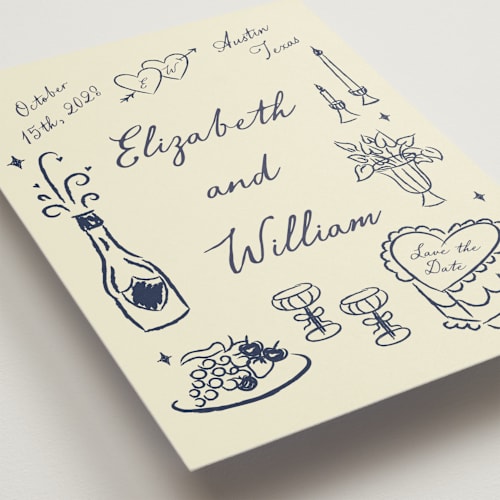 October
15th, 2028
E W
Austin
Texas
Elizabeth
and
William
Save the
Date